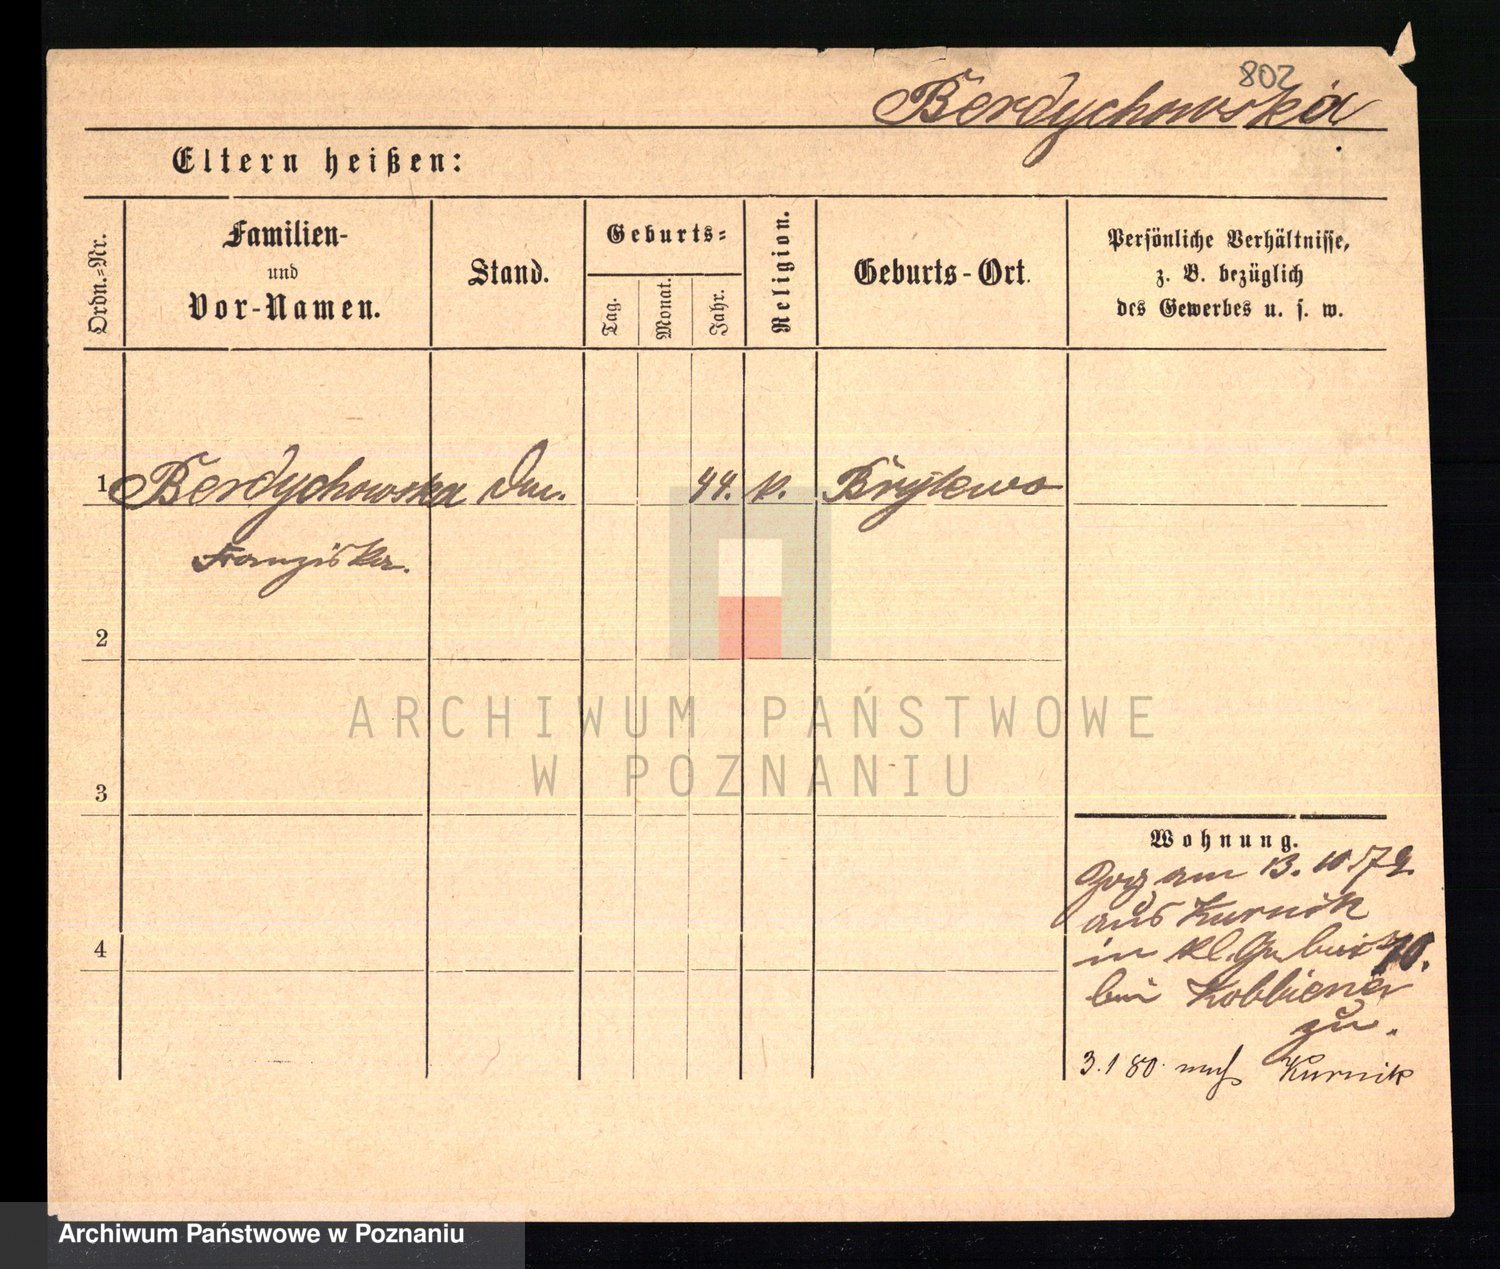 802
Berdychowska
Eltern heißen:
Ordn.=Nr.
Familien-
und
Vor-Namen.
Stand.
Geburts=
Tag.
Monat.
Jahr.
Religion.
Geburts-Ort.
Persönliche Verhältnisse,
z. B. bezüglich
des Gewerbes u. s. w.
1 Berdychowska 44. k.
Franziska.
2
3
4
ARCHIWUM PAŃSTWOWE
W POZNANIU
Wohnung.
Zog am 13. 10 79
aus Kurnik
in kl. 10.
bei
zu.
3.1 80. nach Kurnik
Archiwum Państwowe w Poznaniu